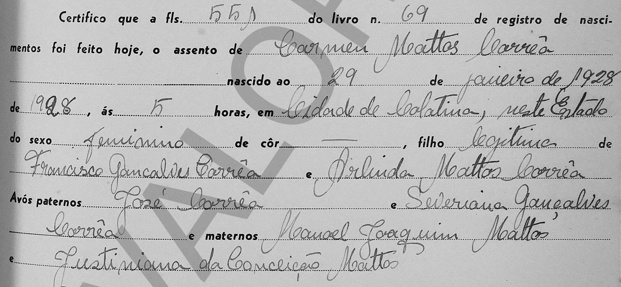 Certifico que a fls. 551 do livro n. 69 de registro de nasci-
mentos foi feito hoje, o assento de Carmen Mattos Corrêa
nascido ao 29 de janeiro de 1928
de 1928, ás 5 horas, em Cidade de Colatina, neste Estado
do sexo feminino de côr —, filho legitima de
Francisco Gancalves Corrêa e Arlinda Mattos Corrêa
Avós paternos José Corrêa e Severiana Gançalves
Corrêa e maternos Manoel Joaquim Mattos
e Justiniana da Conceição Mattos
VALOR